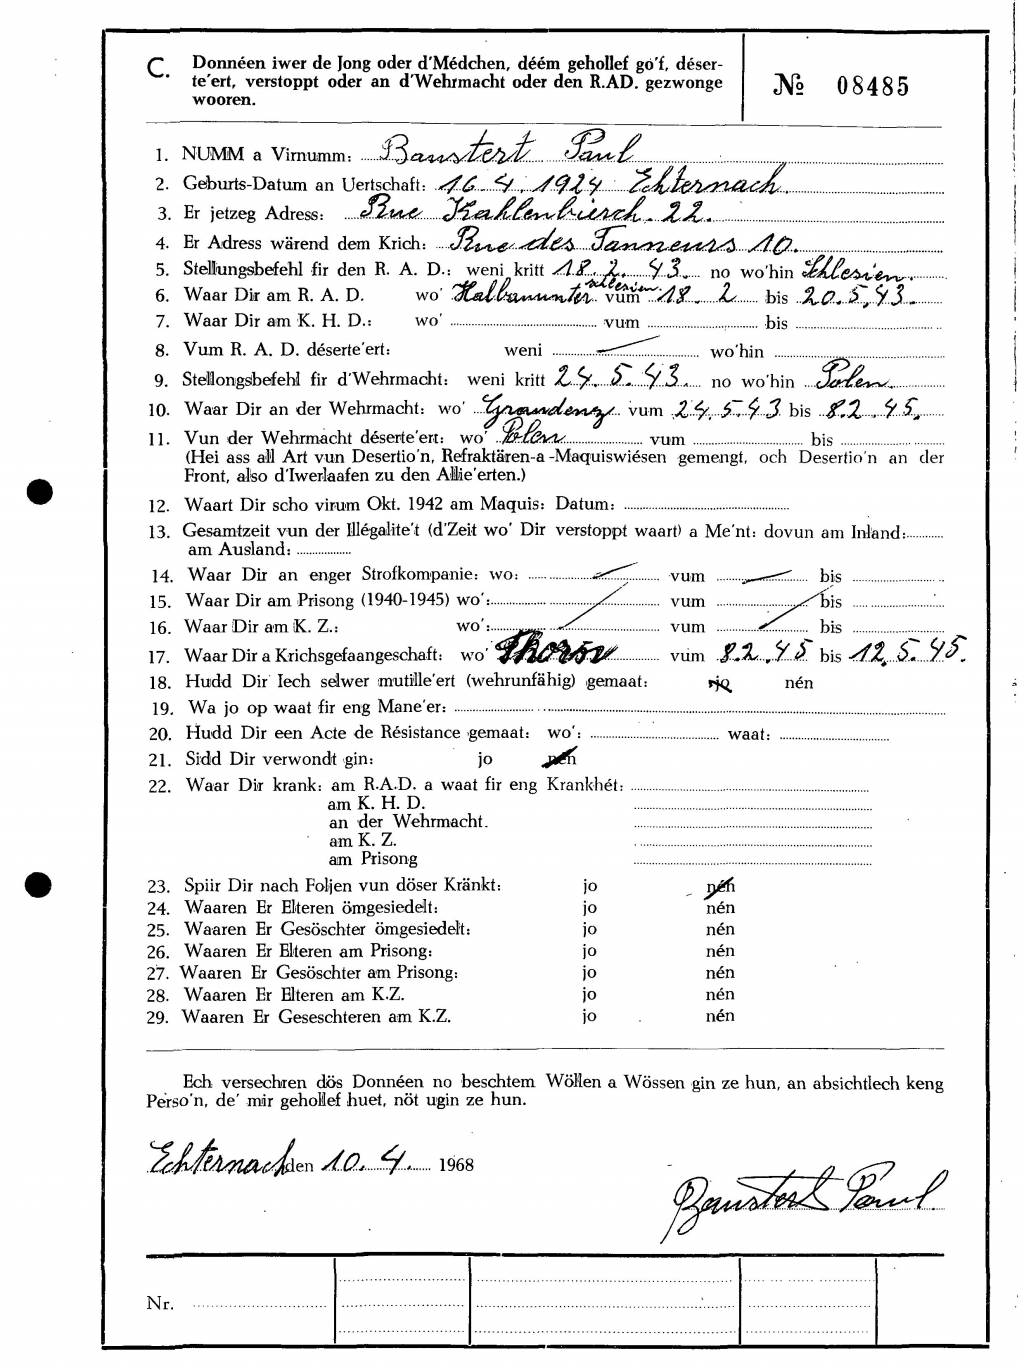 C. Donnéen iwer de Jong oder d'Médchen, déém gehollef go'f, déser-
te'ert, verstoppt oder an d'Wehrmacht oder den R.AD. gezwonge
wooren.
№ 08485
1. NUMM a Virnumm: Baustert Paul
2. Geburts-Datum an Uertschaft: 16.4.1924 Echternach.
3. Er jetzeg Adress: Rue Kahlenbiersch. 22.
4. Er Adress wärend dem Krich: Rue des Tanneurs 10.
5. Stellungsbefehl fir den R. A. D.: weni kritt 18.2.43. no wo'hin Schlesien.
6. Waar Dir am R. A. D. wo' Halbanunter Schlesien. vum 18.2 bis 20.5.43.
7. Waar Dir am K. H. D.: wo' vum bis
8. Vum R. A. D. déserte'ert: weni wo'hin
9. Stellongsbefehl fir d'Wehrmacht: weni kritt 24.5.43. no wo'hin Polen.
10. Waar Dir an der Wehrmacht: wo' Graudenz vum 24.5.43 bis 8.2.45.
11. Vun der Wehrmacht déserte'ert: wo' Polen vum bis
(Hei ass all Art vun Desertio'n, Refraktären-a-Maquiswiésen gemengt, och Desertio'n an der
Front, also d'Iwerlaafen zu den Allie'erten.)
12. Waart Dir scho virum Okt. 1942 am Maquis: Datum:
13. Gesamtzeit vun der Illégalite't (d'Zeit wo' Dir verstoppt waart) a Me'nt: dovun am Inland:
am Ausland:
14. Waar Dir an enger Strofkompanie: wo: vum bis
15. Waar Dir am Prisong (1940-1945) wo': vum bis
16. Waar Dir am K. Z.: wo': vum bis
17. Waar Dir a Krichsgefaangeschaft: wo' Thorn vum 8.2.45 bis 12.5.45.
18. Hudd Dir Iech selwer mutille'ert (wehrunfähig) gemaat: jo nén
19. Wa jo op waat fir eng Mane'er:
20. Hudd Dir een Acte de Résistance gemaat: wo': waat:
21. Sidd Dir verwondt gin: jo nén
22. Waar Dir krank: am R.A.D. a waat fir eng Krankhét:
am K. H. D.
an der Wehrmacht.
am K. Z.
am Prisong
23. Spiir Dir nach Foljen vun döser Kränkt: jo nén
24. Waaren Er Elteren ömgesiedelt: jo nén
25. Waaren Er Gesöschter ömgesiedelt: jo nén
26. Waaren Er Elteren am Prisong: jo nén
27. Waaren Er Gesöschter am Prisong: jo nén
28. Waaren Er Elteren am K.Z. jo nén
29. Waaren Er Geseschteren am K.Z. jo nén
Ech versechren dös Donnéen no beschtem Wöllen a Wössen gin ze hun, an absichtlech keng
Perso'n, de' mir gehollef huet, nöt ugin ze hun.
Echternach den 10.4. 1968
Baustert Paul
Nr.